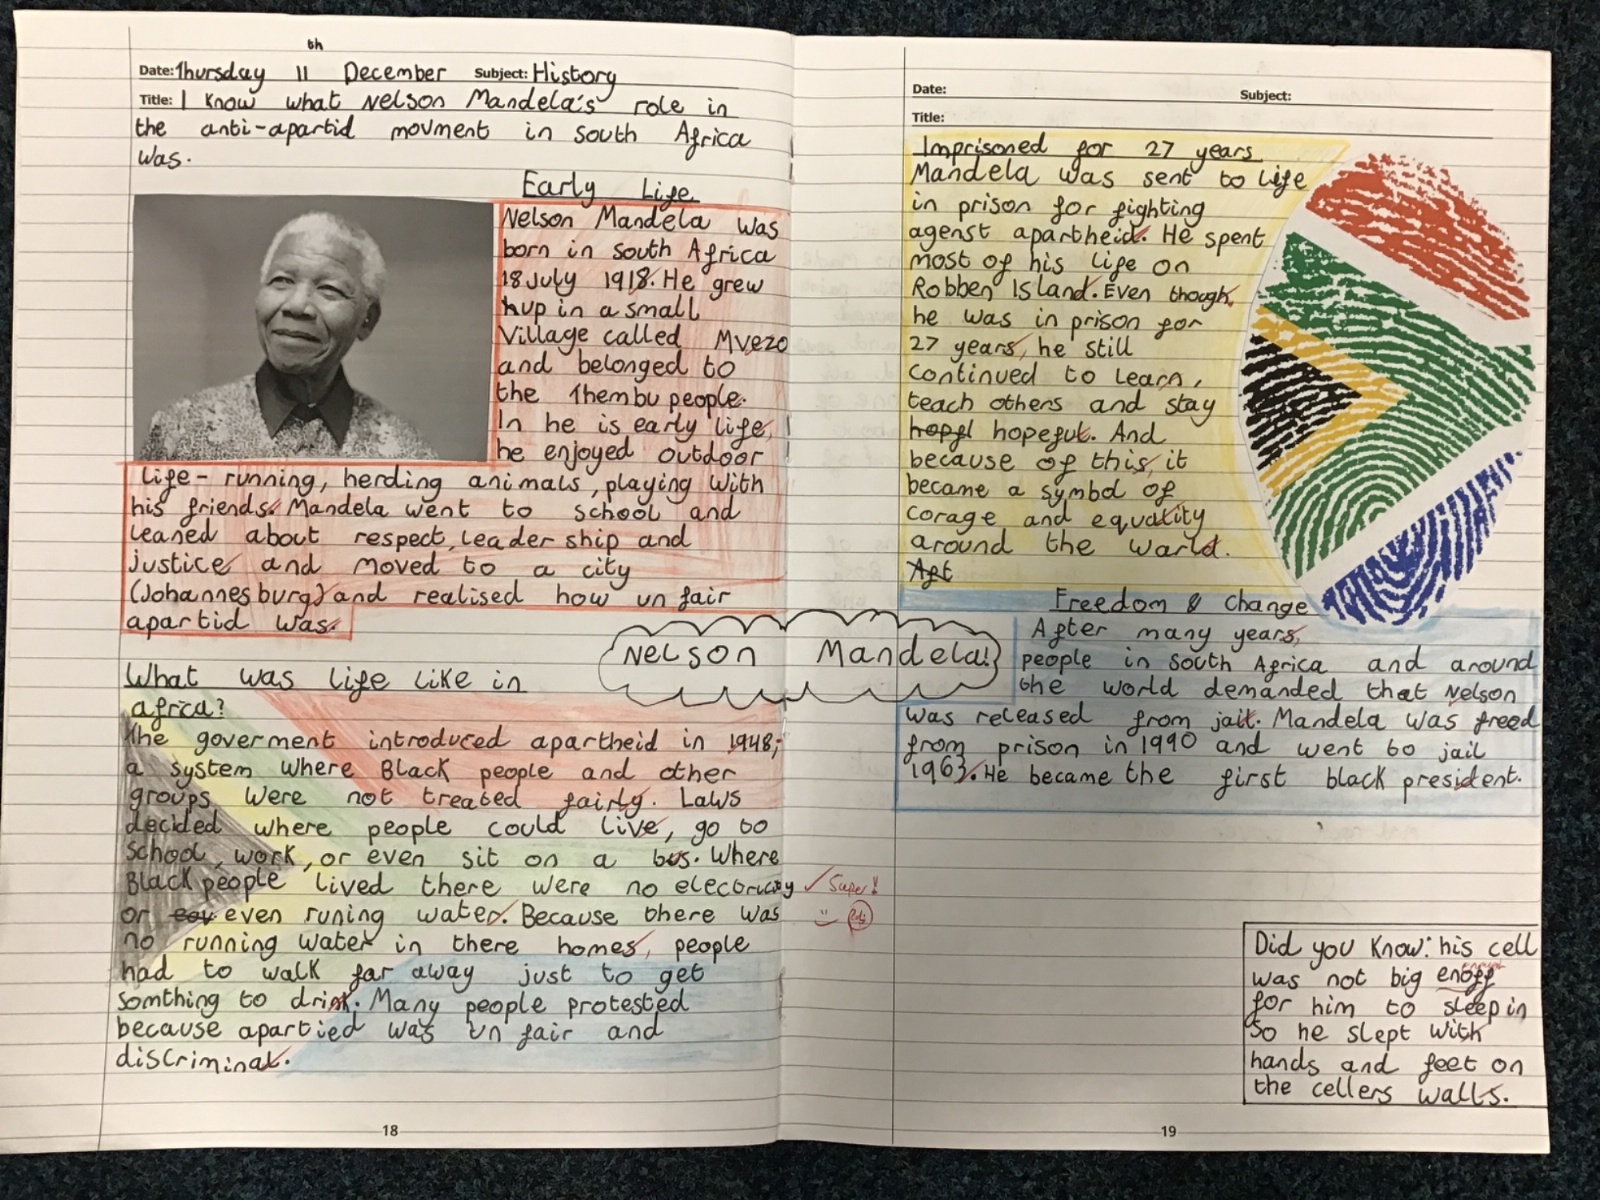 th
Date: Thursday 11 December Subject: History
Title: I know what Nelson Mandela's role in
the anti-apartid movment in south Africa
was.
Early Life
Nelson Mandela was
born in south Africa
18 July 1918. He grew
up in a small
Village called Mvezo
and belonged to
the Thembu people.
In he is early life,
he enjoyed outdoor
life - running, herding animals, playing with
his friends. Mandela went to school and
leaned about respect, leader ship and
justice and moved to a city
(Johannesburg) and realised how un fair
apartid was.
What was life like in
africa?
The goverment introduced apartheid in 1948,
a system where Black people and other
groups were not treated fairly. Laws
decided where people could live, go to
school, work, or even sit on a bus. Where
Black people lived there were no electricity
or even runing water. Because there was
no running water in there homes, people
had to walk far away just to get
somthing to drink. Many people protested
because apartied was un fair and
discriminat.
✓ Super!
18
Nelson Mandela!
Date: Subject:
Title:
Imprisoned for 27 years
Mandela was sent to life
in prison for fighting
agenst apartheid. He spent
most of his life on
Robben Island. Even though
he was in prison for
27 years, he still
continued to learn,
teach others and stay
hopfl hopeful. And
because of this, it
became a symbol of
corage and equality
around the world.
Aft
Freedom & Change
After many years,
people in south Africa and around
the world demanded that Nelson
was released from jail. Mandela was freed
from prison in 1990 and went to jail
1963. He became the first black president.
Did you Know: his cell
was not big enoff
for him to sleep in
so he slept with
hands and feet on
the cellers walls.
19